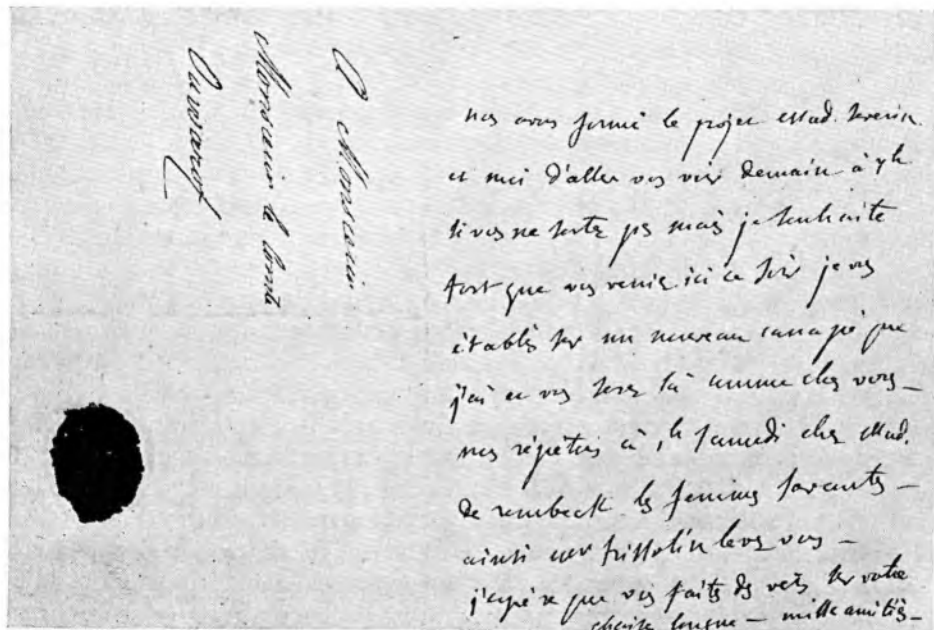 A Monsieur
Monsieur le Comte
Ouvarof
nos avons formé le projet Mad. Severin
et moi d'aller vos voir demain à 7h
si vos ne sortez ps mais je souhaite
fort que vos veniez ici ce soir je vos
établis sur un nouveau canapé que
j'ai et vos serez là comme chez vous –
nos répétons à 1h samedi chez Mad.
de rembeck les femmes savantes –
ainsi Trissotin levez vous –
j'espère que vos faits des vers sur votre
chaise longue – mille amitiés –